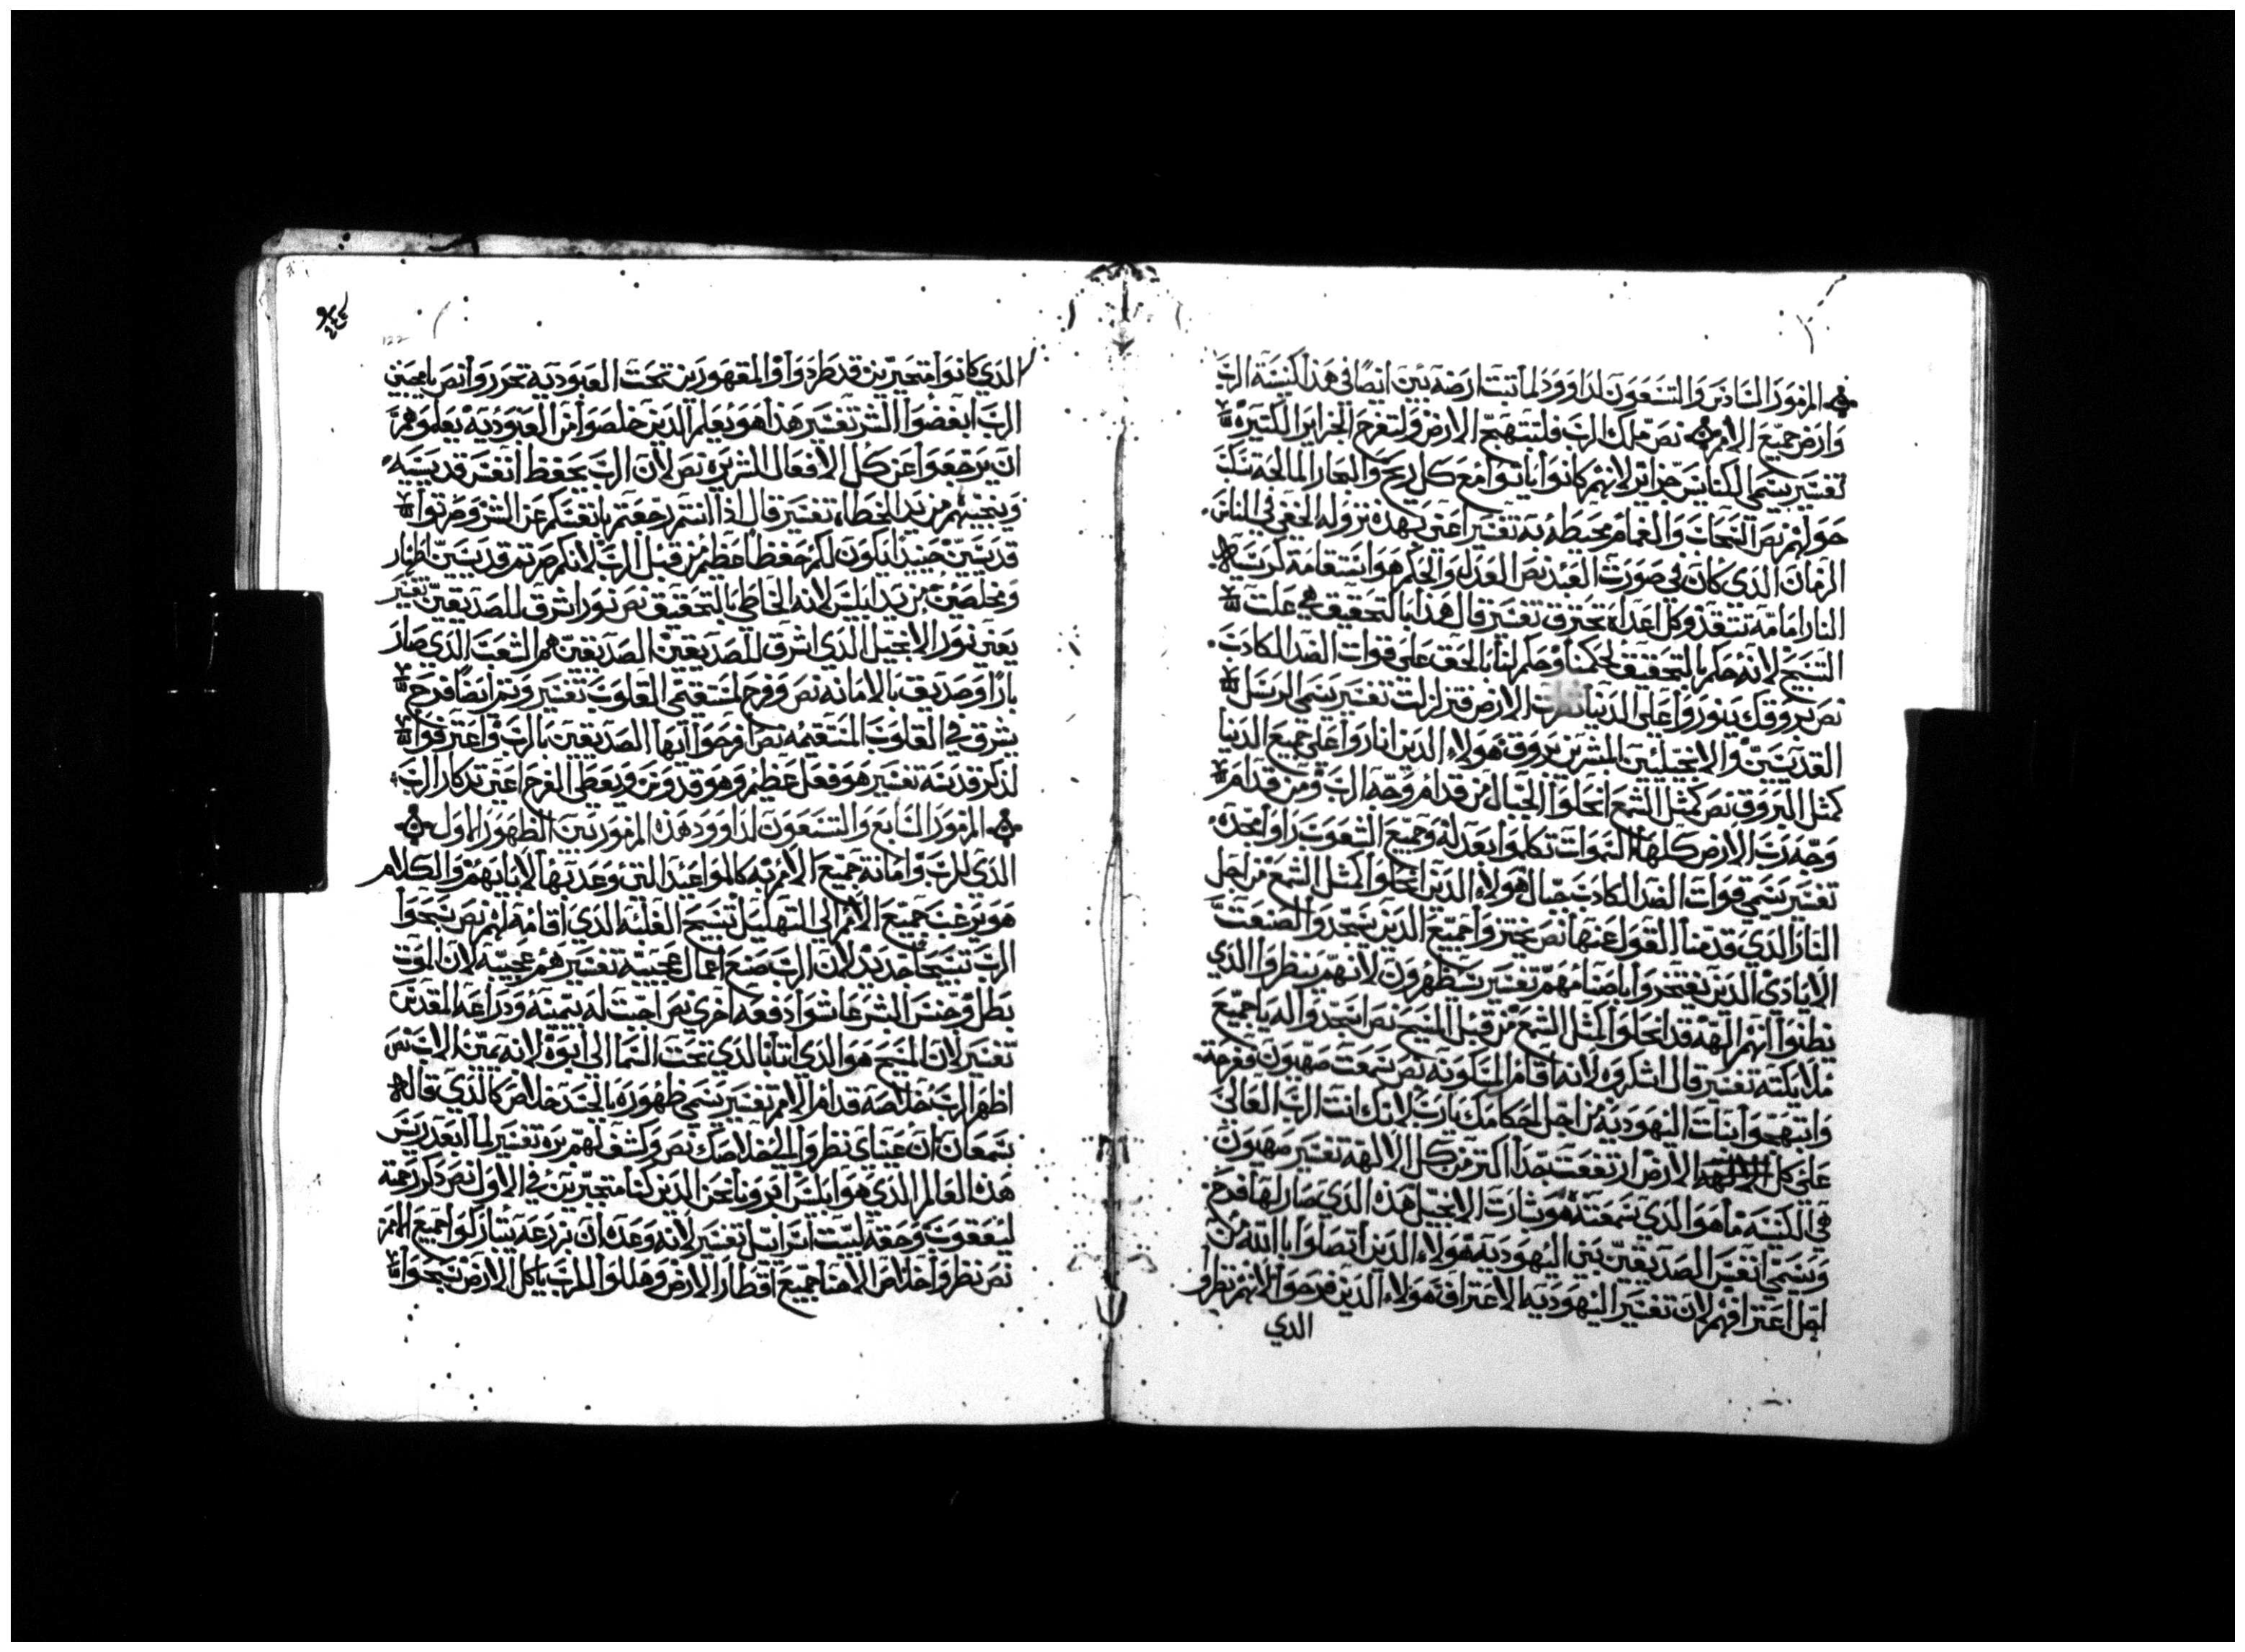 المزمور السادس والتسعون لداوود لما تبت ارضه يبين ايضا في هذا كنيسة الرب
وارض جميع الامم نص ملك الرب فلتبتهج الارض ولتفرح الجزاير الكتيره
تفسير يسمي الكنايس جزائر لانهم كانوا ياتوا مع كل ريح والبحار المالحة
حولهم نص السحاب والغمام محيطه به تفسير اعني بهده نزوله الخفي في الناس
الزمان الدي كان في صورت العبد نص العدل والحكم هو استقامة كرسيه
النار امامه تتقد وكل اعداه تحترق تفسير قال هدا بالتحقيق هي علت
المسيح لانه حكم بالتحقيق لحكمنا وحكم لنا بالحق على قوات الضد الكادب
نص بروقك ينوروا على الدنيا الارض فتزلزلت تفسير يسمي الرسل
القديسين والانجيليين المبشرين بروق هولاء الدين اناروا على جميع الدنيا
كمثل البروق نص كمثل الشمع انحلوا الجبال من قدام وجه الرب ومن قدام
وجه رب الارض كلها السموات تكلموا بعدله وجميع الشعوب راوا مجده
تفسير يسمي قوات الضد الكادب جبال هولاء الدين انحلوا كمثل الشمع من اجل
النار الدي قدمنا القول عنها نص يخزوا جميع الدين يسجدوا لصنعت
الايادي الدين يفتخروا باصنامهم تفسير ستظهرون لانهم ينظروا الدي
يظنوا انهم الهه قد انحلوا كمثل الشمع من قبل المسيح نص اسجدوا له يا جميع
ملايكته تفسير قال اشكروه لانه اقام المسكونه نص سمعت صهيون ففرحت
وابتهجوا بنات اليهوديه من اجل احكامك يارب لانك انت الرب العالي
على كل الارض ارتفعت جدا اكتر من كل الالهه تفسير صهيون
هي الكنيسه ما هو الدي سمعته هو بشارت الانجيل هده الدي صار لها فرح
ويسمي انفس الصديقين بني اليهوديه هولاء الدين اتصلوا بالله من
اجل اعترافهم لان تفسير اليهوديه الاعتراف هولاء الدين فرحوا لانهم نظروا
الدي
الدي كانوا متجبرين قد طردوا والمقهورين تحت العبوديه تحرروا نص يا محبين
الرب ابغضوا الشر تفسير هدا هو يعلم الدين خلصوا من العبوديه يعلموهم
ان يرجعوا عن كل الافعال الشريره نص لان الرب يحفظ انفس قديسيه
وينجيهم من يد الخطاه تفسير قال ادا انتم رجعتم بانفسكم عن الشر وصرتوا
قديسين حينيدا يكون لكم حفظا عظم من قبل الرب لانكم صرتم قديسين اطهار
ومخلصين من يد ابليس لانه الخاطي بالتحقيق نص نور اشرق للصديقين تفسير
يعني نور الانجيل الدي اشرق للصديقين الصديقين هم الشعب الدي صار
بارا وصديق بالامانه نص وفرح لمستقيمي القلوب تفسير وتم ايضا فرح
يشرق في القلوب المستقيمه نص افرحوا ايها الصديقين بالرب واعترفوا
لدكر قدسه تفسير هو فعل عظم وهو قدوس ويعطي الفرح اعني تدكار الرب
المزمور السابع والتسعون لداوود هده المزمور تبين الظهور الاول
الدي للرب وامانة جميع الامم به كالمواعيد التي وعد بها لابايهم والكلام
هو يرغب جميع الامم الي التهليل تسبيح الغلبه الدي اقامه لهم نص سبحوا
الرب تسبيحا جديد لان الرب صنع اعمال عجيبه تفسير هم عجيبه لان الموت
بطل وجنس البشر عاشوا دفعه اخري نص احيت له يمينه ودراعه المقدس
تفسير لان المسيح هو الدي اتا بالدي تحت السما الى ابوه لانه يمين الاب نص
اظهر الرب خلاصه قدام الامم تفسير يسمي ظهوره بالجسد خلاص كالدي قاله
سمعان ان عيناي نظروا الي خلاصك نص وكشف لهم بره تفسير لما ابعد ريس
هدا العالم الدي هو ابليس ابرونا نحن الدين كنا متجبرين في الاول نص دكر رحمته
ليعقوب وحقه لبيت اسرائيل تفسير لانه وعده ان بزرعه يتباركوا جميع الامم
نص نظروا خلاص الاهنا جميع اقطار الارض وهللوا للرب يا كل الارض سبحوا